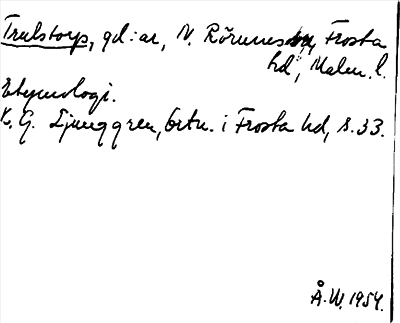 Trulstorp, gd:ar, N. Rörums sn, Frosta
hd, Malm. l.
Etymologi.
K. G. Ljunggren, Ortn. i Frosta hd, s. 33.
Å.W. 1954.